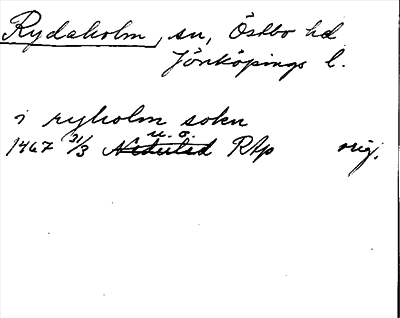 Rydaholm, sn, Östbo hd
Jönköpings l.
i ryholm sokn
u. o.
1467 31/3 RAp orig.